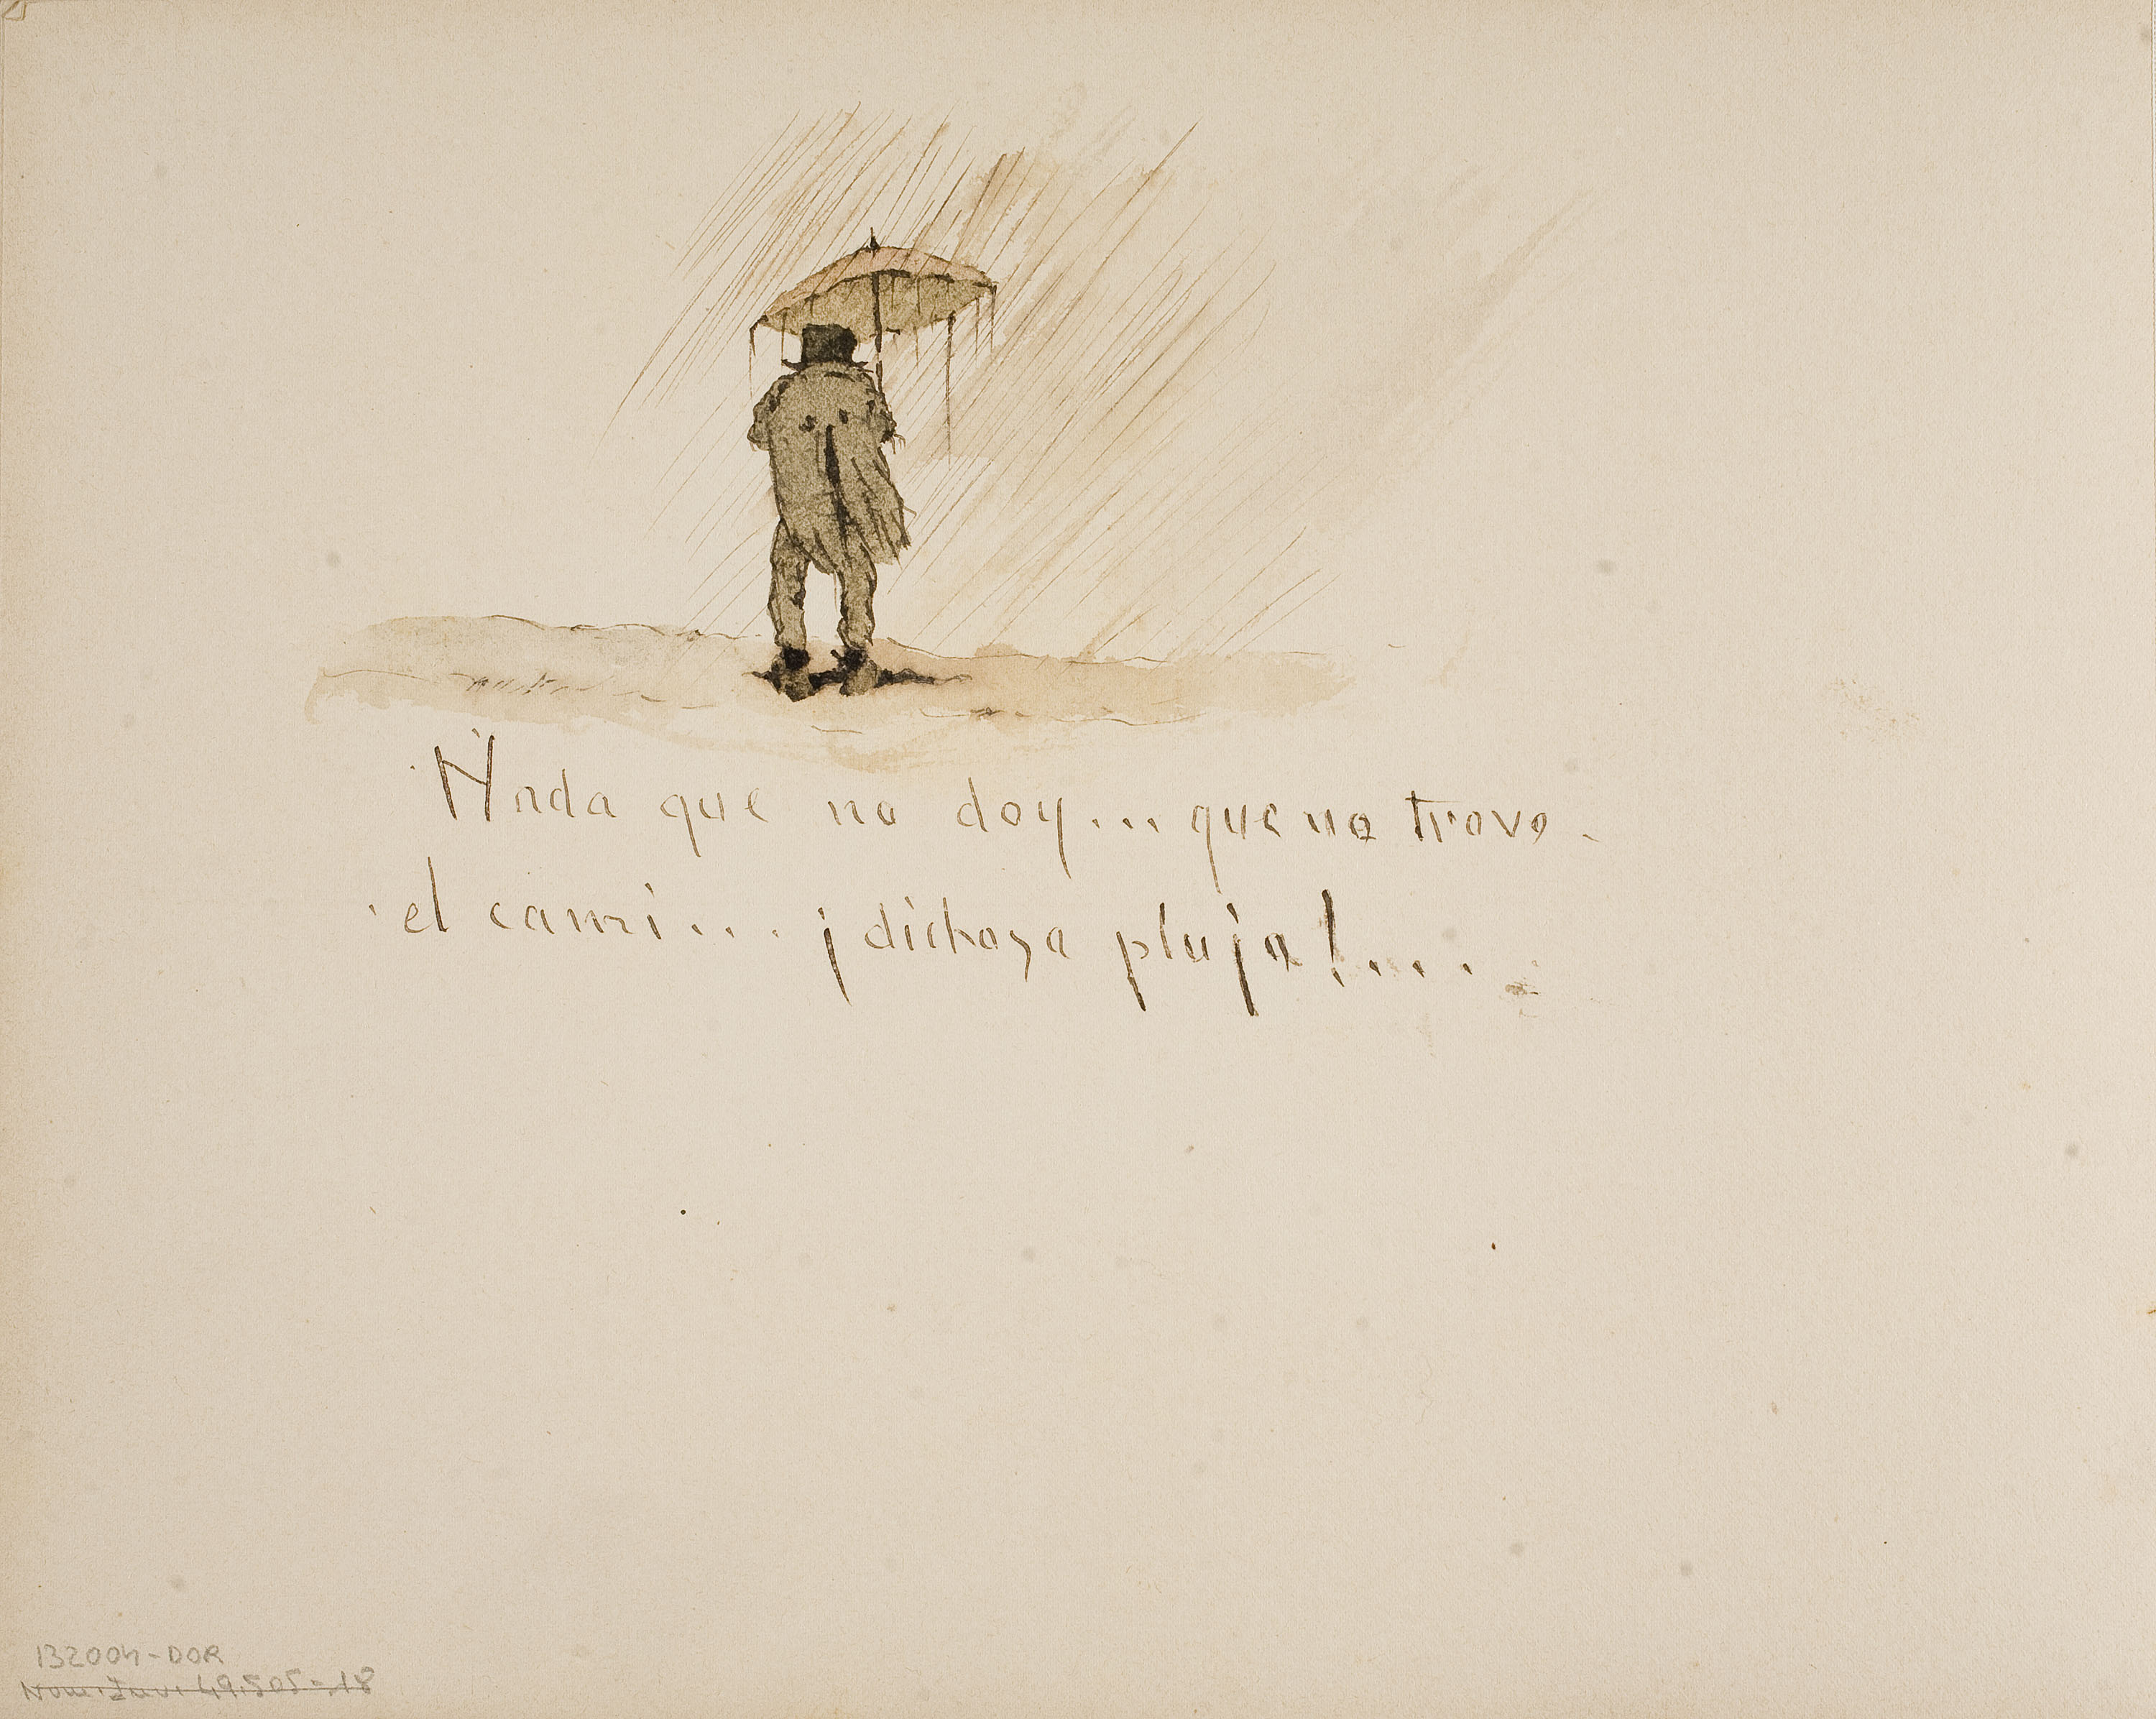 Nada que no doy... que no trovo
el cami... ¡dichosa pluja!....
132004-DOR
Num. Inv. 49.505-18